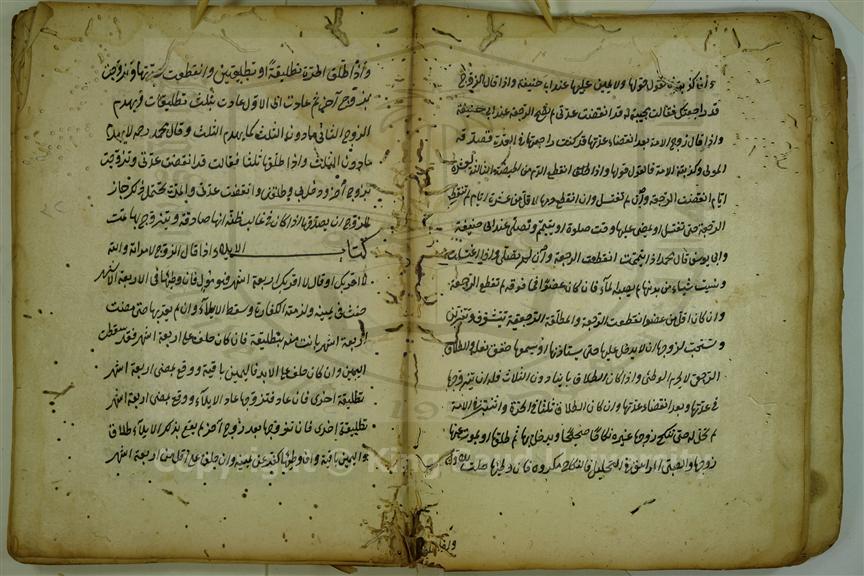 وإن كذبته فالقول قولها ولا يمين عليها عند أبي حنيفة وإذا قال الزوج
قد راجعتك فقالت مجيبة له قد انقضت عدتي لم تصح الرجعة عند أبي حنيفة
وإذا قال زوج الأمة بعد انقضاء عدتها قد كنت راجعتها في العدة فصدقه
المولى وكذبته الأمة فالقول قولها وإذا انقطع الدم من الحيضة الثالثة لعشرة
أيام انقضت الرجعة وإن لم تغتسل وإن انقطع دمها لأقل من عشرة أيام لم تنقطع
الرجعة حتى تغتسل أو يمضي عليها وقت صلوة أو تتيمم وتصلي عند أبي حنيفة
وأبي يوسف قال محمد إذا تيممت انقطعت الرجعة وإن لم تصلي وإذا اغتسلت
ونسيت شيئا من بدنها لم يصبه الماء فإن كان عضوا فما فوقه لم تنقطع الرجعة
وإن كان أقل من عضو انقطعت الرجعة والمطلقة الرجعية تتشوف وتتزين
وتستحب لزوجها أن لا يدخل عليها حتى يستأذنها أو يسمعها خفق نعله والطلاق
الرجعي لا يحرم الوطئ وإذا كان الطلاق باينا دون الثلاث فله أن يتزوجها
في عدتها وبعد انقضاء عدتها وإن كان الطلاق ثلاثا في الحرة واثنتين في الأمة
لم تحل له حتى تنكح زوجا غيره نكاحا صحيحا ويدخل بها ثم يطلقها أو يموت عنها
وإذا طلق الحرة تطليقة أو تطليقتين وانقطعت عدتها وتزوجت
بزوج آخر ثم عادت إلى الأول عادت بثلث تطليقات ويهدم
الزوج الثاني ما دون الثلث كما يهدم الثلث وقال محمد رحمه لا يهدم
ما دون الثلث وإذا طلقها ثلثا فقالت قد انقضت عدتي وتزوجت
بزوج آخر ودخل بي وطلقني وانقضت عدتي والمدة تحتمل ذلك جاز
للزوج أن يصدقها إذا كان في غالب ظنه أنها صادقة ويتزوج بها
كتاب الإيلاء إذا قال الزوج لامرأته والله
لا أقربك أو قال لا أقربك أربعة أشهر فهو مول فإن وطئها في الأربعة الأشهر
حنث في يمينه ولزمته الكفارة وسقط الإيلاء وإن لم يقربها حتى مضت
أربعة أشهر بانت منه بتطليقة فإن كان حلف على أربعة أشهر فقد سقطت
اليمين وإن كان حلف على الأبد فاليمين باقية ووقع بمضي أربعة أشهر
تطليقة أخرى فإن عاد فتزوجها عاد الإيلاء ووقع بمضي أربعة أشهر
تطليقة أخرى فإن تزوجها بعد زوج آخر لم يقع بذلك الإيلاء طلاق
واليمين باقية وإن وطئها كفر عن يمينه وإن حلف على أقل من أربعة أشهر